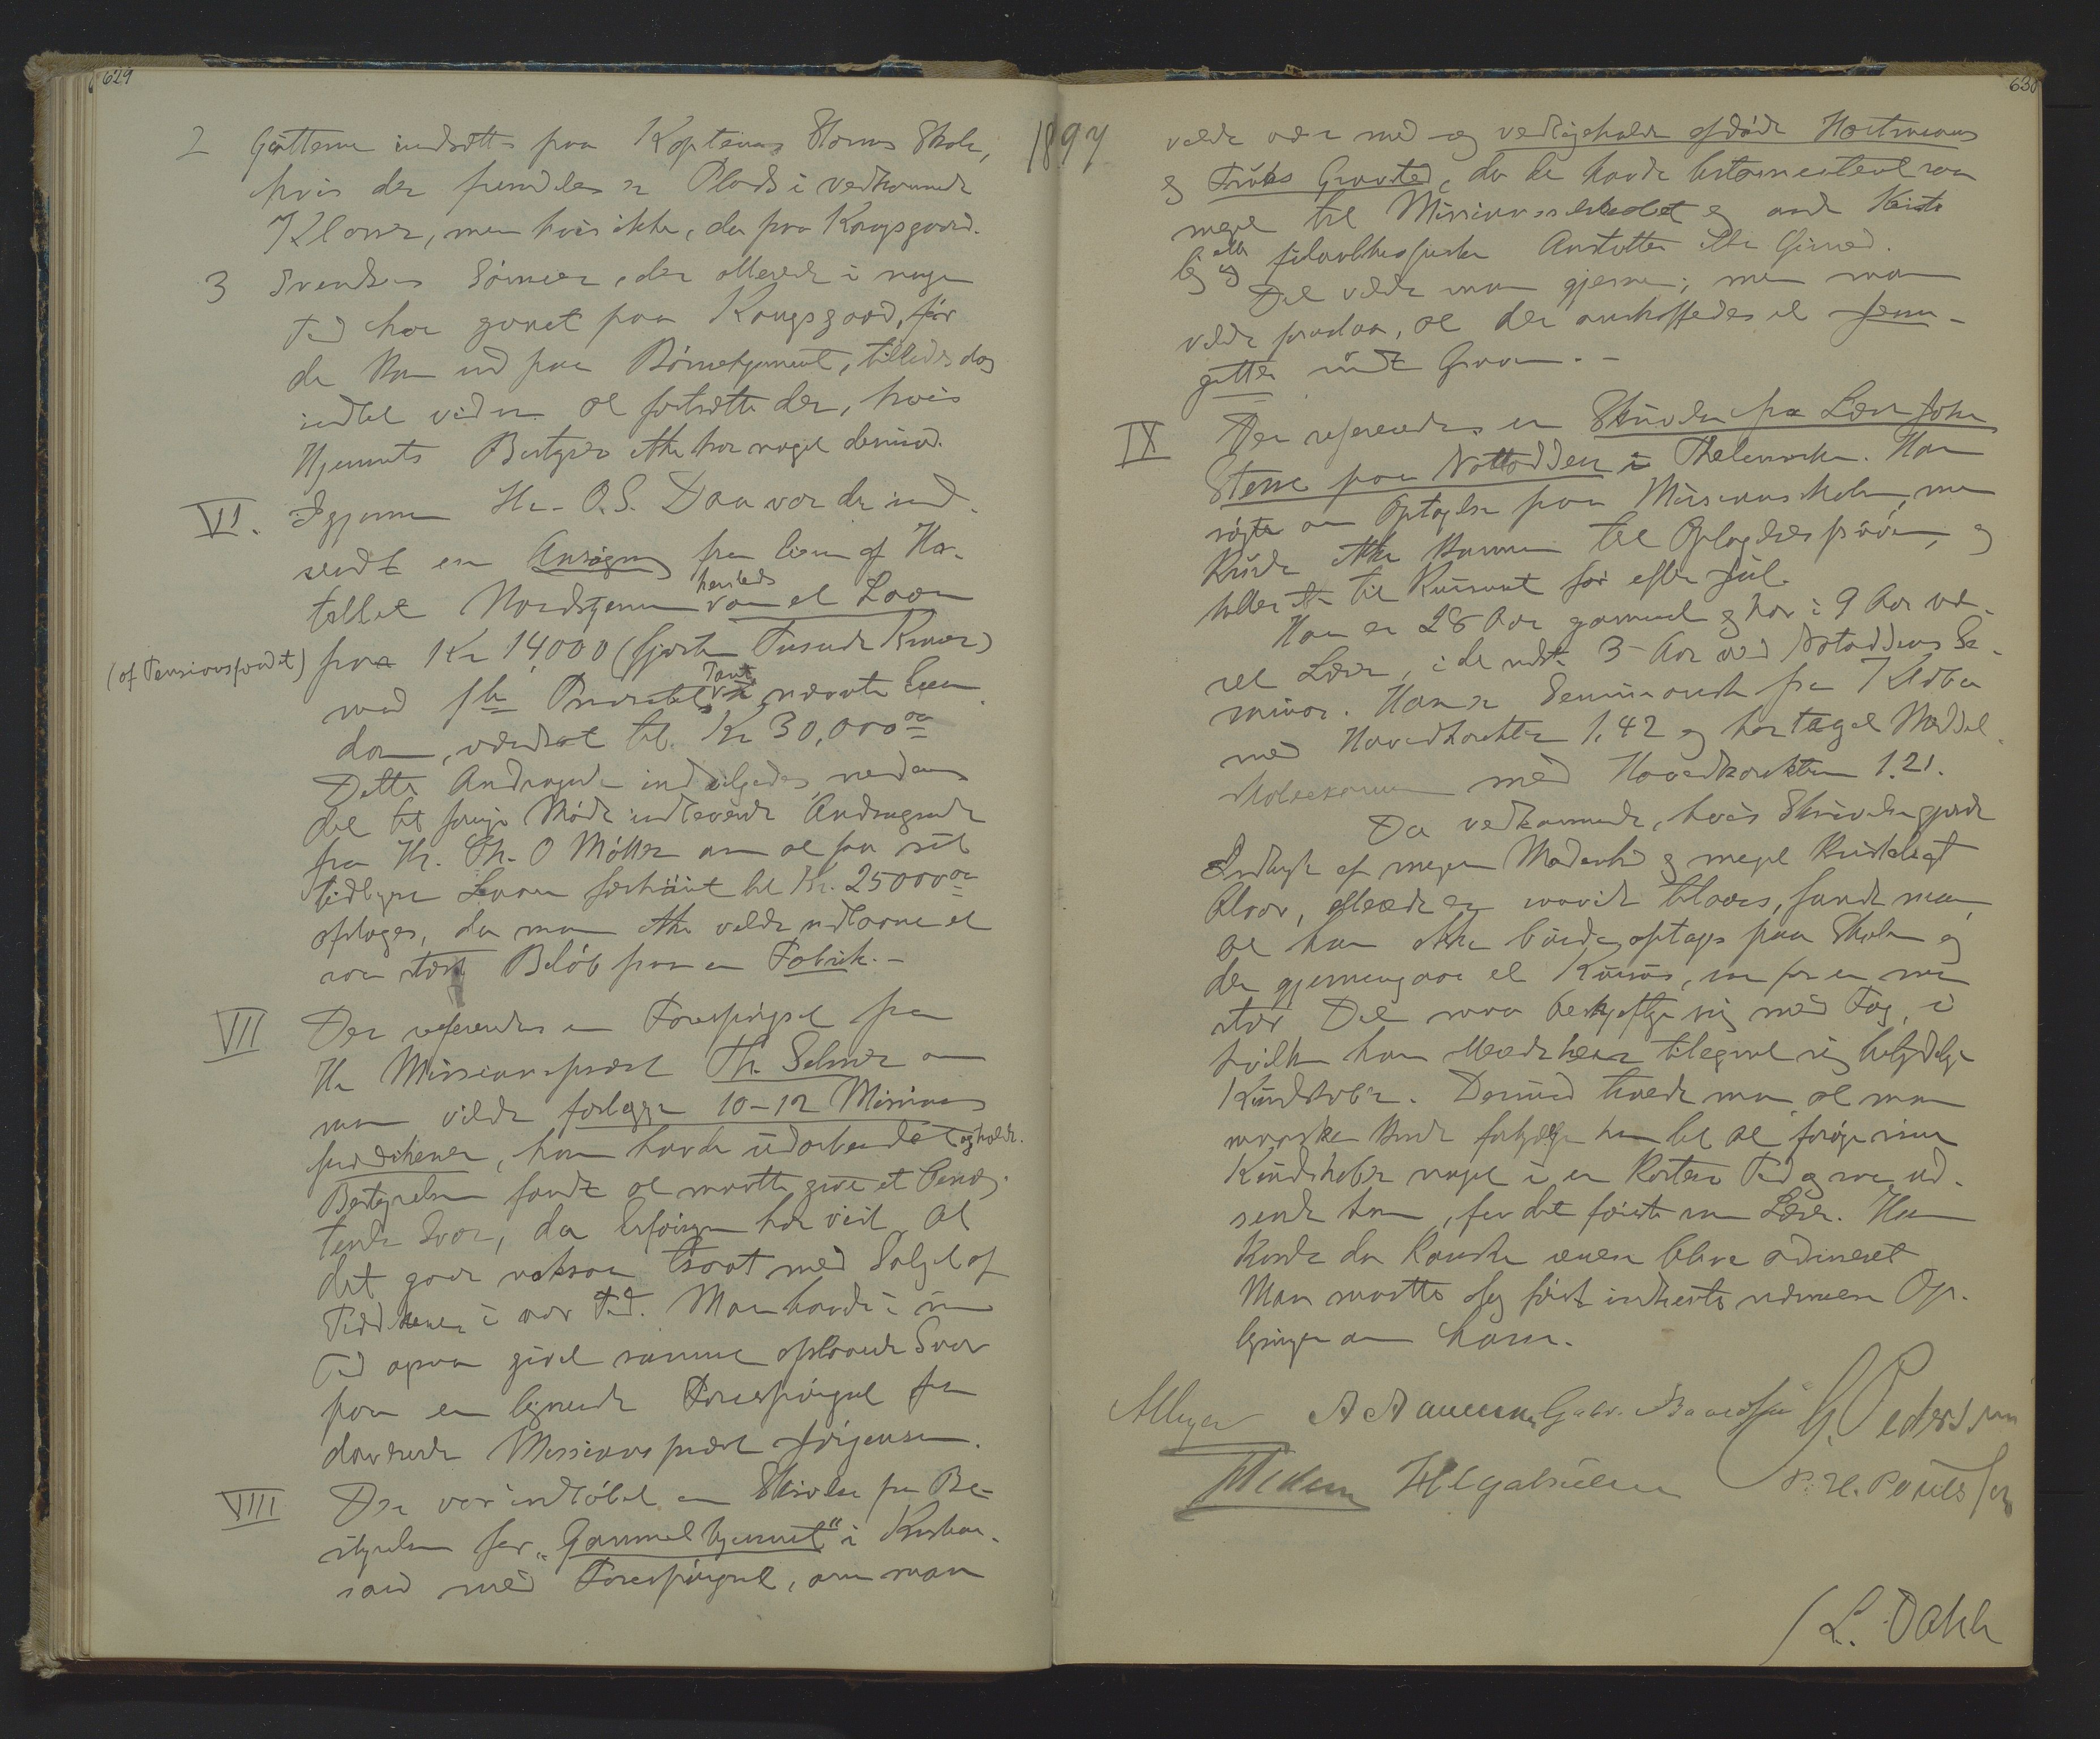 629
2 Gutterne indsættes paa Kaptains Storms Skole,
hvis der fremdeles er Plads i vedkommende
Klasser, men hvis ikke, da paa Kongsgaard.
3 Svendsens Sønner, der allerede i nogen
Tid har gaaet paa Kongsgaard, før
de kom ind paa Børnehjemmet, tillades dog
indtil videre at fortsætte der, hvis
Hjemmets Bestyrer ikke har noget derimod.
VI. Igjennem Hr. O. S. Daa var der ind-
sendt en Ansøgning fra Eieren af Ho-
tellet Nordstjernen hersteds om et Laan
(af Pensionsfondet) paa Kr 14,000 (fjorten Tusinde Kroner)
mod 1ste Prioritets Pant i nævnte Eien-
dom, værdsat til Kr 30,000
Dette Andragende indvilgedes, medens
det til forrige Møde indleverede Andragende
fra Hr. Th. O Møller om at faa sit
tidligere Laan forhøiet til Kr. 25000
afsloges, da man ikke vilde udlaane et
saa stort Beløb paa en Fabrik. -
VII Der refereredes en Forespørgsel fra
Hr Missionspræst Th. Selmer om
man vilde forlægge 10-12 Missions
prædikener, han havde udarbeidet og holdt.
Bestyrelsen fandt at maatte give et benæg-
tende Svar, da Erfaringen har vist, at
det gaar saa smaat med Salget af
Prædikener i vor Tid. Man havde i sin
Tid ogsaa givet samme afslaaende Svar
paa en lignende Forespørgsel fra
daværende Missionspræst Jørgensen.
VIII Der var indløbet en Skrivelse fra Be-
styrelsen for "Gammelhjemmet" i Kristian-
sand med Forespørgsel, om man
1897
630
vilde være med og vedligeholde afdøde Hartmanns
og Frues Gravsted, da de havde testamenteret saa
meget til Missionsselskabet og andre kirke
lige og filantropiske Anstalter eller Gjerninger.
Det vilde man gjerne; men man
vilde foreslaa, at der anskaffedes et Jern-
gitter rundt Graven. -
IX Der refereredes en Skrivelse fra Lærer John
Stene paa Nottodden i Thelemarken. Han
søgte om Optagelse paa Missionsskolen, men
kunde ikke komme til Optagelsesprøven, og
heller ikke til Kurset før efter Jul.
Han er 28 Aar gammel og har i 9 Aar væ-
ret Lærer, i de sidste 3 Aar ved Notoddens Se-
minar. Han er Seminarist fra Klæbu
med Hovedkarakter 1.42 og har taget Middel-
skoleexamen med Hovedkarakteren 1.21.
Da vedkommende, hvis Skrivelse gjorde
Indtryk af megen Modenhed og meget kristeligt
Alvor, allerede er tilaars, fandt man,
at han ikke burde optages paa Skolen og
der gjennemgaa et Kursus, som for en saa
stor Del maa beskjæftige sig med Fag, i
hvilke han allerede har tilegnet sig betydelige
Kundskaber. Derimod troede man at man
maaske kunde forhjælpe ham til at forøge sine
Kundskaber noget i en kortere Tid og saa ud-
sende ham, for det første som Lærer. Han
kunde da kanske senere blive ordineret
Man maatte dog først indhente nærmere Op-
lysninger om ham.
A Aanensen Gabr. Baardsen G. Pedersen
H Gabrielsen P. H. Poulssen
/ L. Dahle